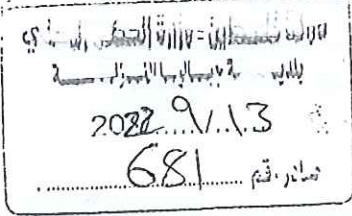 دولة فلسطين - وزارة الحكم المحلي
بلدية
2022/9/13
صادر رقم 681